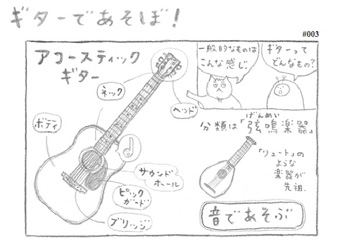 ギターであそぼ!
#003
アコースティック
ギター
ネック
ヘッド
ボディ
サウンド
ホール
ピック
ガード
ブリッジ
ギターって
どんなもの?
一般的なものは
こんな感じ
げんめい
分類は「弦鳴楽器」
「リュート」の
ような
楽器が
先祖.
音であそぶ